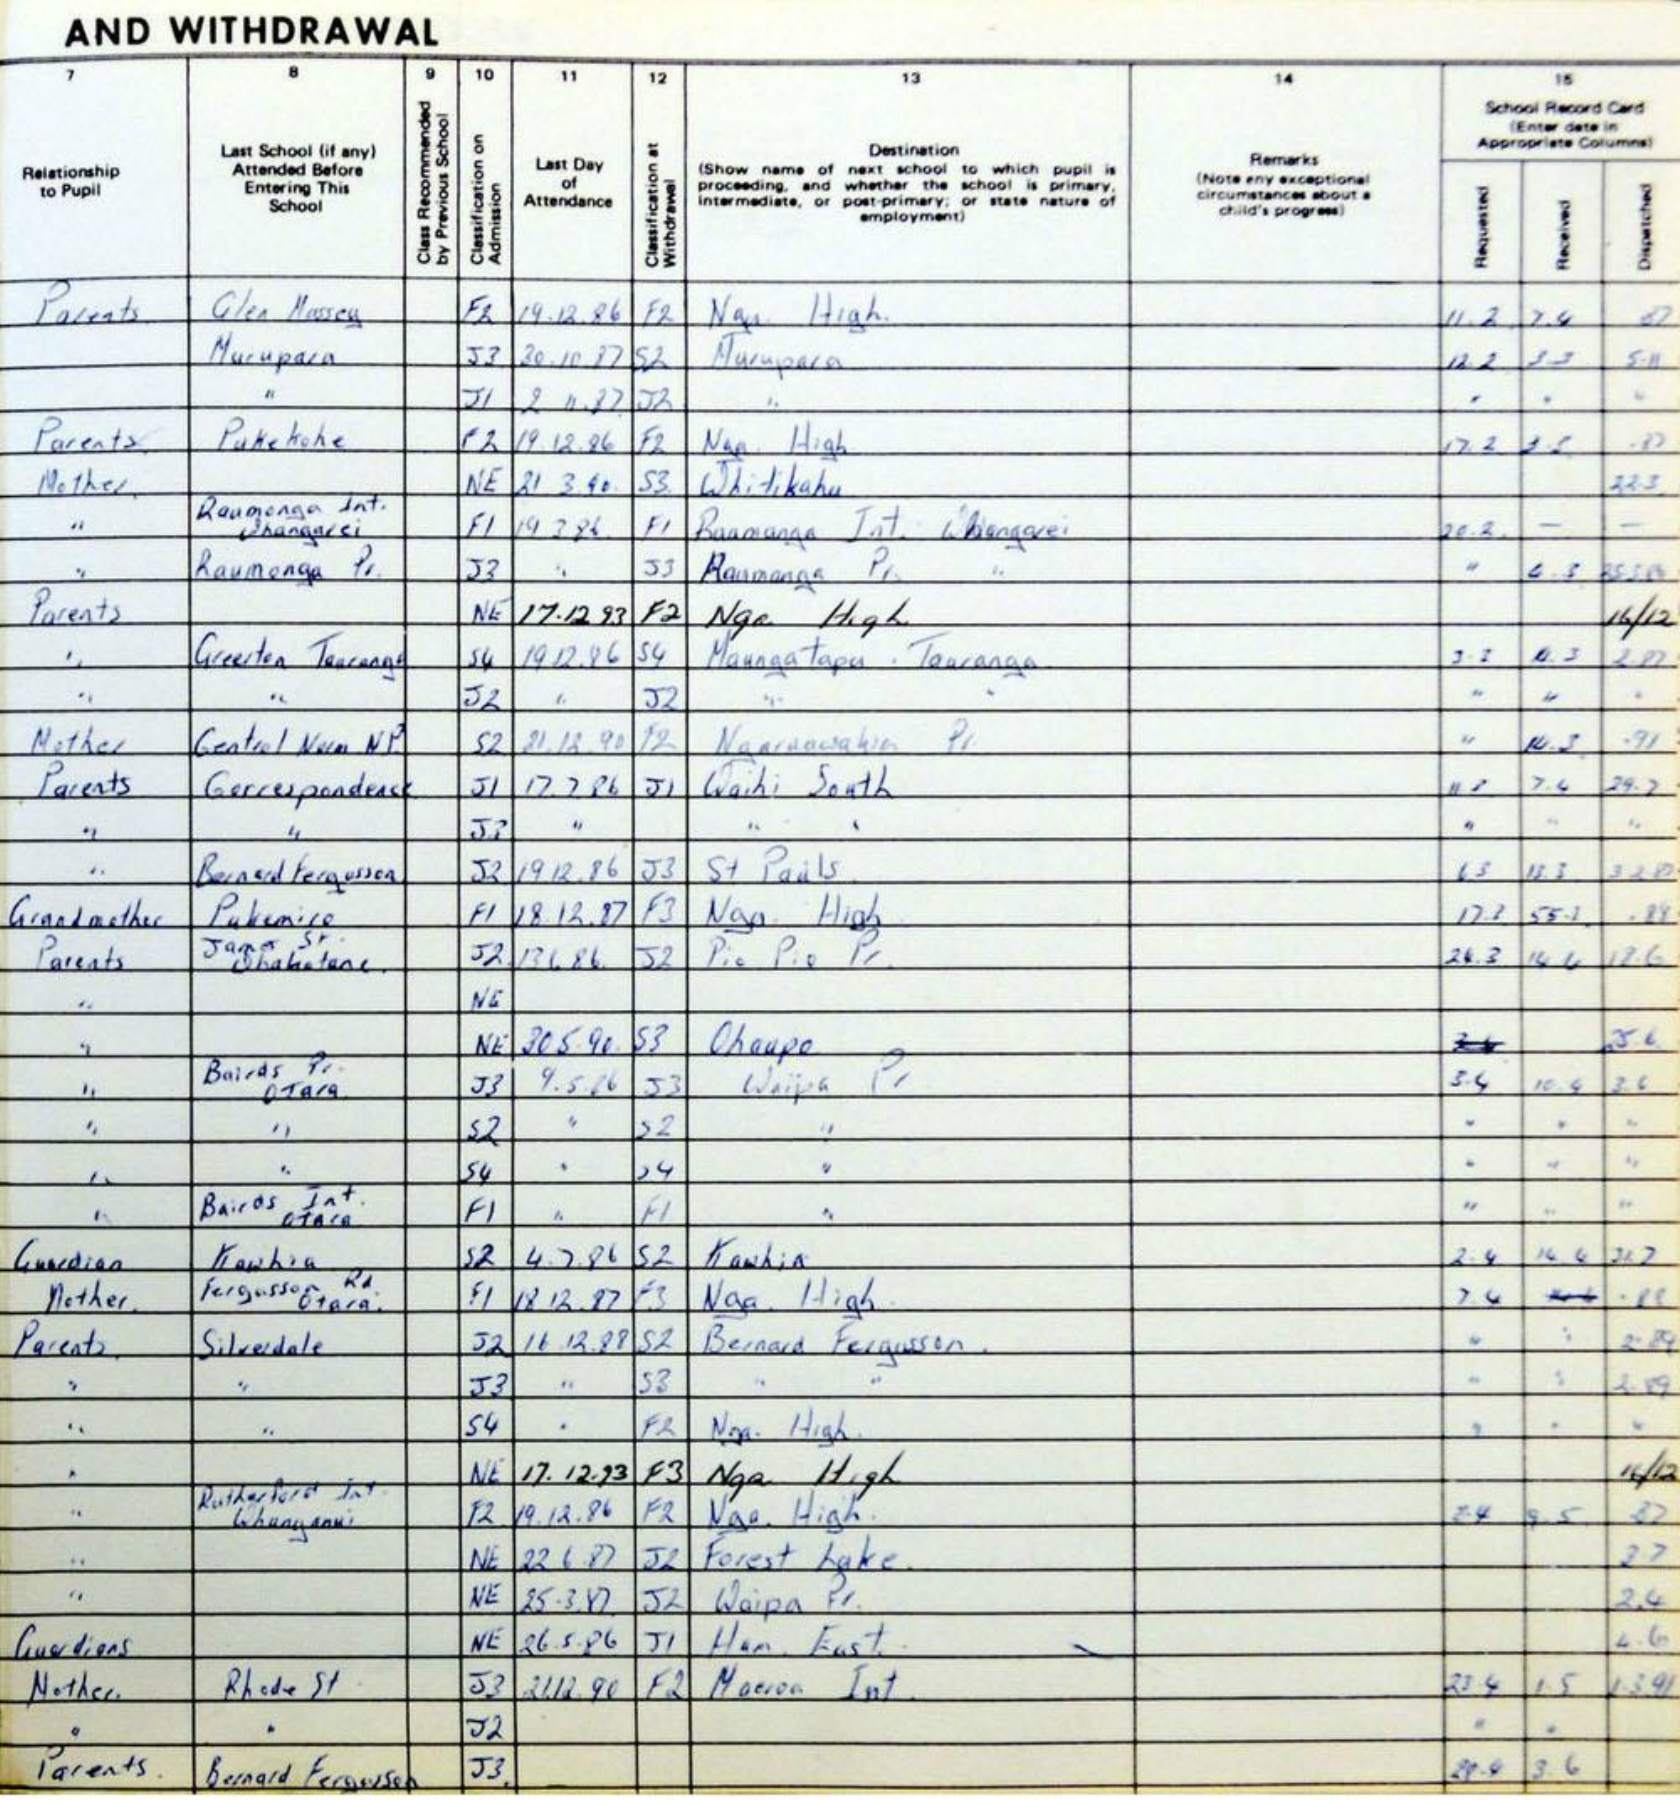 AND WITHDRAWAL
7 8 9 10 11 12 13 14 15
Relationship to Pupil
Last School (if any) Attended Before Entering This School
Class Recommended by Previous School
Classification on Admission
Last Day of Attendance
Classification at Withdrawal
Destination
(Show name of next school to which pupil is proceeding, and whether the school is primary, intermediate, or post-primary; or state nature of employment)
Remarks
(Note any exceptional circumstances about a child's progress)
School Record Card
(Enter date in Appropriate Columns)
Requested Received Dispatched
Parents Glen Massey F2 19.12.86 F2 Nga. High. 11.2 7.4 87
Murupara J3 30.10.87 S2 Murupara 12.2 3.3 5.11
" J1 2 11.87 J2 " " " "
Parents Pukekohe F2 19.12.86 F2 Nga. High 17.2 .87
Mother NE 21 3.90. S3 Whitikahu 22.3
" Raumanga Int. Whangarei F1 19 3 86. F1 Raumanga Int. Whangarei 20.2. — —
" Raumanga Pr. J3 " J3 Raumanga Pr. " "
Parents NE 17.12 93 F2 Nga. High 16/12
" Greerton Tauranga S4 19.12.86 S4 Maungatapu. Tauranga 3.3 14.3 2.87
" " J2 " J2 " " " " "
Mother Central Norm N.P. S2 21.12.90 F2 Ngaruawahia Pr. " 14.3 .91
Parents Correspondence J1 17.7.86 J1 Waihi South 7.4 29.7
" " J3 " " " " " "
" Bernard Fergusson J2 19.12.86 J3 St Pauls 13.3
Grandmother Pukemiro F1 18.12.87 F3 Nga. High
Parents James St. Whakatane. J2 13.6.86. J2 Pio Pio Pr. 24.3 14.4 18.6
" NE
" NE 30.5.90. S3 Ohaupo 25.6
" Bairds Pr. Otara J3 9.5.86 J3 Waipa Pr 3.4 10.4 3.6
" " S2 " S2 " " " "
" " S4 " S4 " " " "
" Bairds Int. Otara F1 " F1 " " " "
Guardian Kawhia S2 4.7.86 S2 Kawhia 2.4 14.4 21.7
Mother. Fergusson Rd Otara. F1 18.12.87 F3 Nga. High. 7.4 .88
Parents. Silverdale J2 16.12.88 S2 Bernard Fergusson. " " 2.89
" " J3 " S3 " " " " 2.89
" " S4 " F2 Nga. High. " " "
" NE 17.12.93 F3 Nga High 16/12
" Rutherford Int. Whanganui F2 19.12.86 F2 Nga. High. 9.5 87
" NE 22 6.87 J2 Forest Lake.
" NE 25.3.87. J2 Waipa Pr. 2.4
Guardians NE 26.5.86 J1 Ham. East. 4.6
Mother. Rhode St J3 21.12.90 F2 Maeroa Int. 23.4 1.5 1.3.91
" " J2 " "
Parents. Bernard Fergusson J3. 29.4 3.6